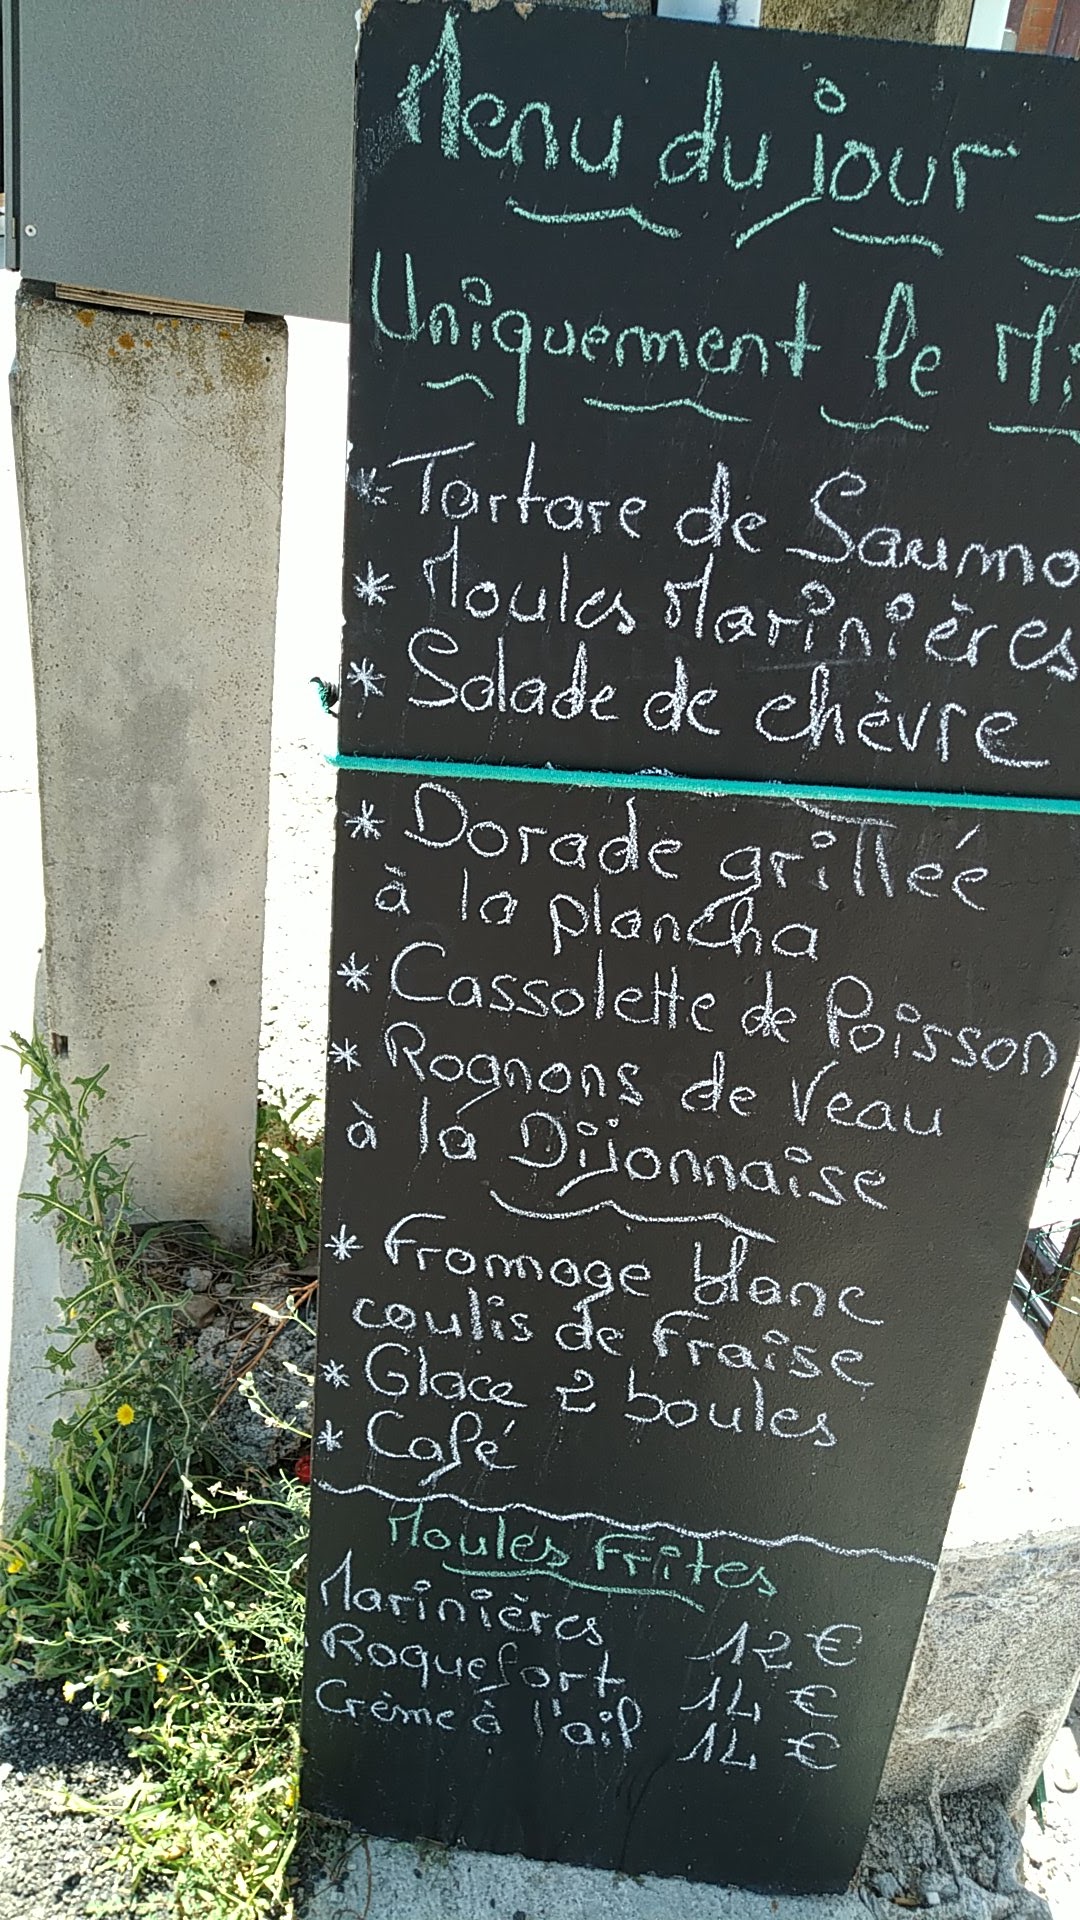 Menu du jour
Uniquement le Mi
* Tartare de Saumo
* Moules Marinières
* Salade de chèvre
* Dorade grillée
à la plancha
* Cassolette de Poisson
* Rognons de Veau
à la Dijonnaise
* Fromage blanc
coulis de Fraise
* Glace 2 boules
* Café
Moules Frites
Marinières 12 €
Roquefort 14 €
Crème à l'ail 14 €